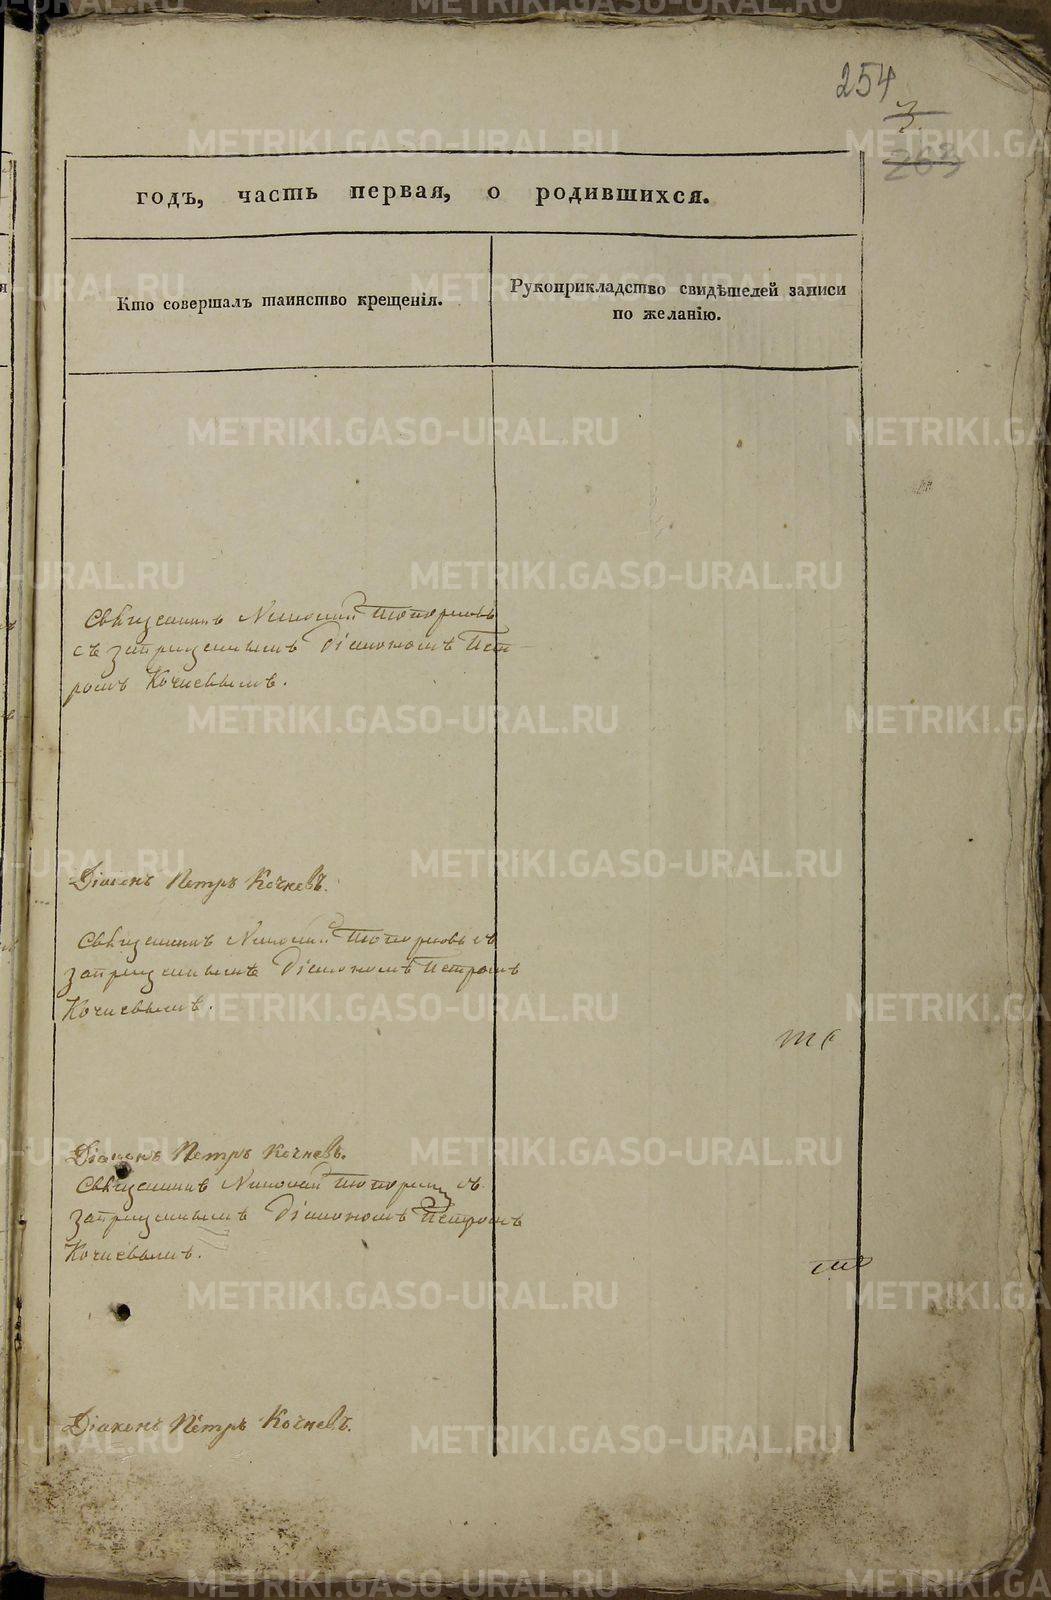 254
3
263
годъ, часть первая, о родившихся.
Кто совершалъ таинство крещенія.
Рукоприкладство свидѣтелей записи
по желанію.
Священникъ Николай Топорковъ
съ запрещеннымъ Діакономъ Пет-
ромъ Кочневымъ.
Діаконъ Петръ Кочневъ.
Священникъ Николай Топорковъ съ
запрещеннымъ Діакономъ Петромъ
Кочневымъ.
Діаконъ Петръ Кочневъ.
Священникъ Николай съ
запрещеннымъ Діакономъ Петромъ
Кочневымъ.
Діаконъ Петръ Кочневъ.
METRIKI.GASO-URAL.RU